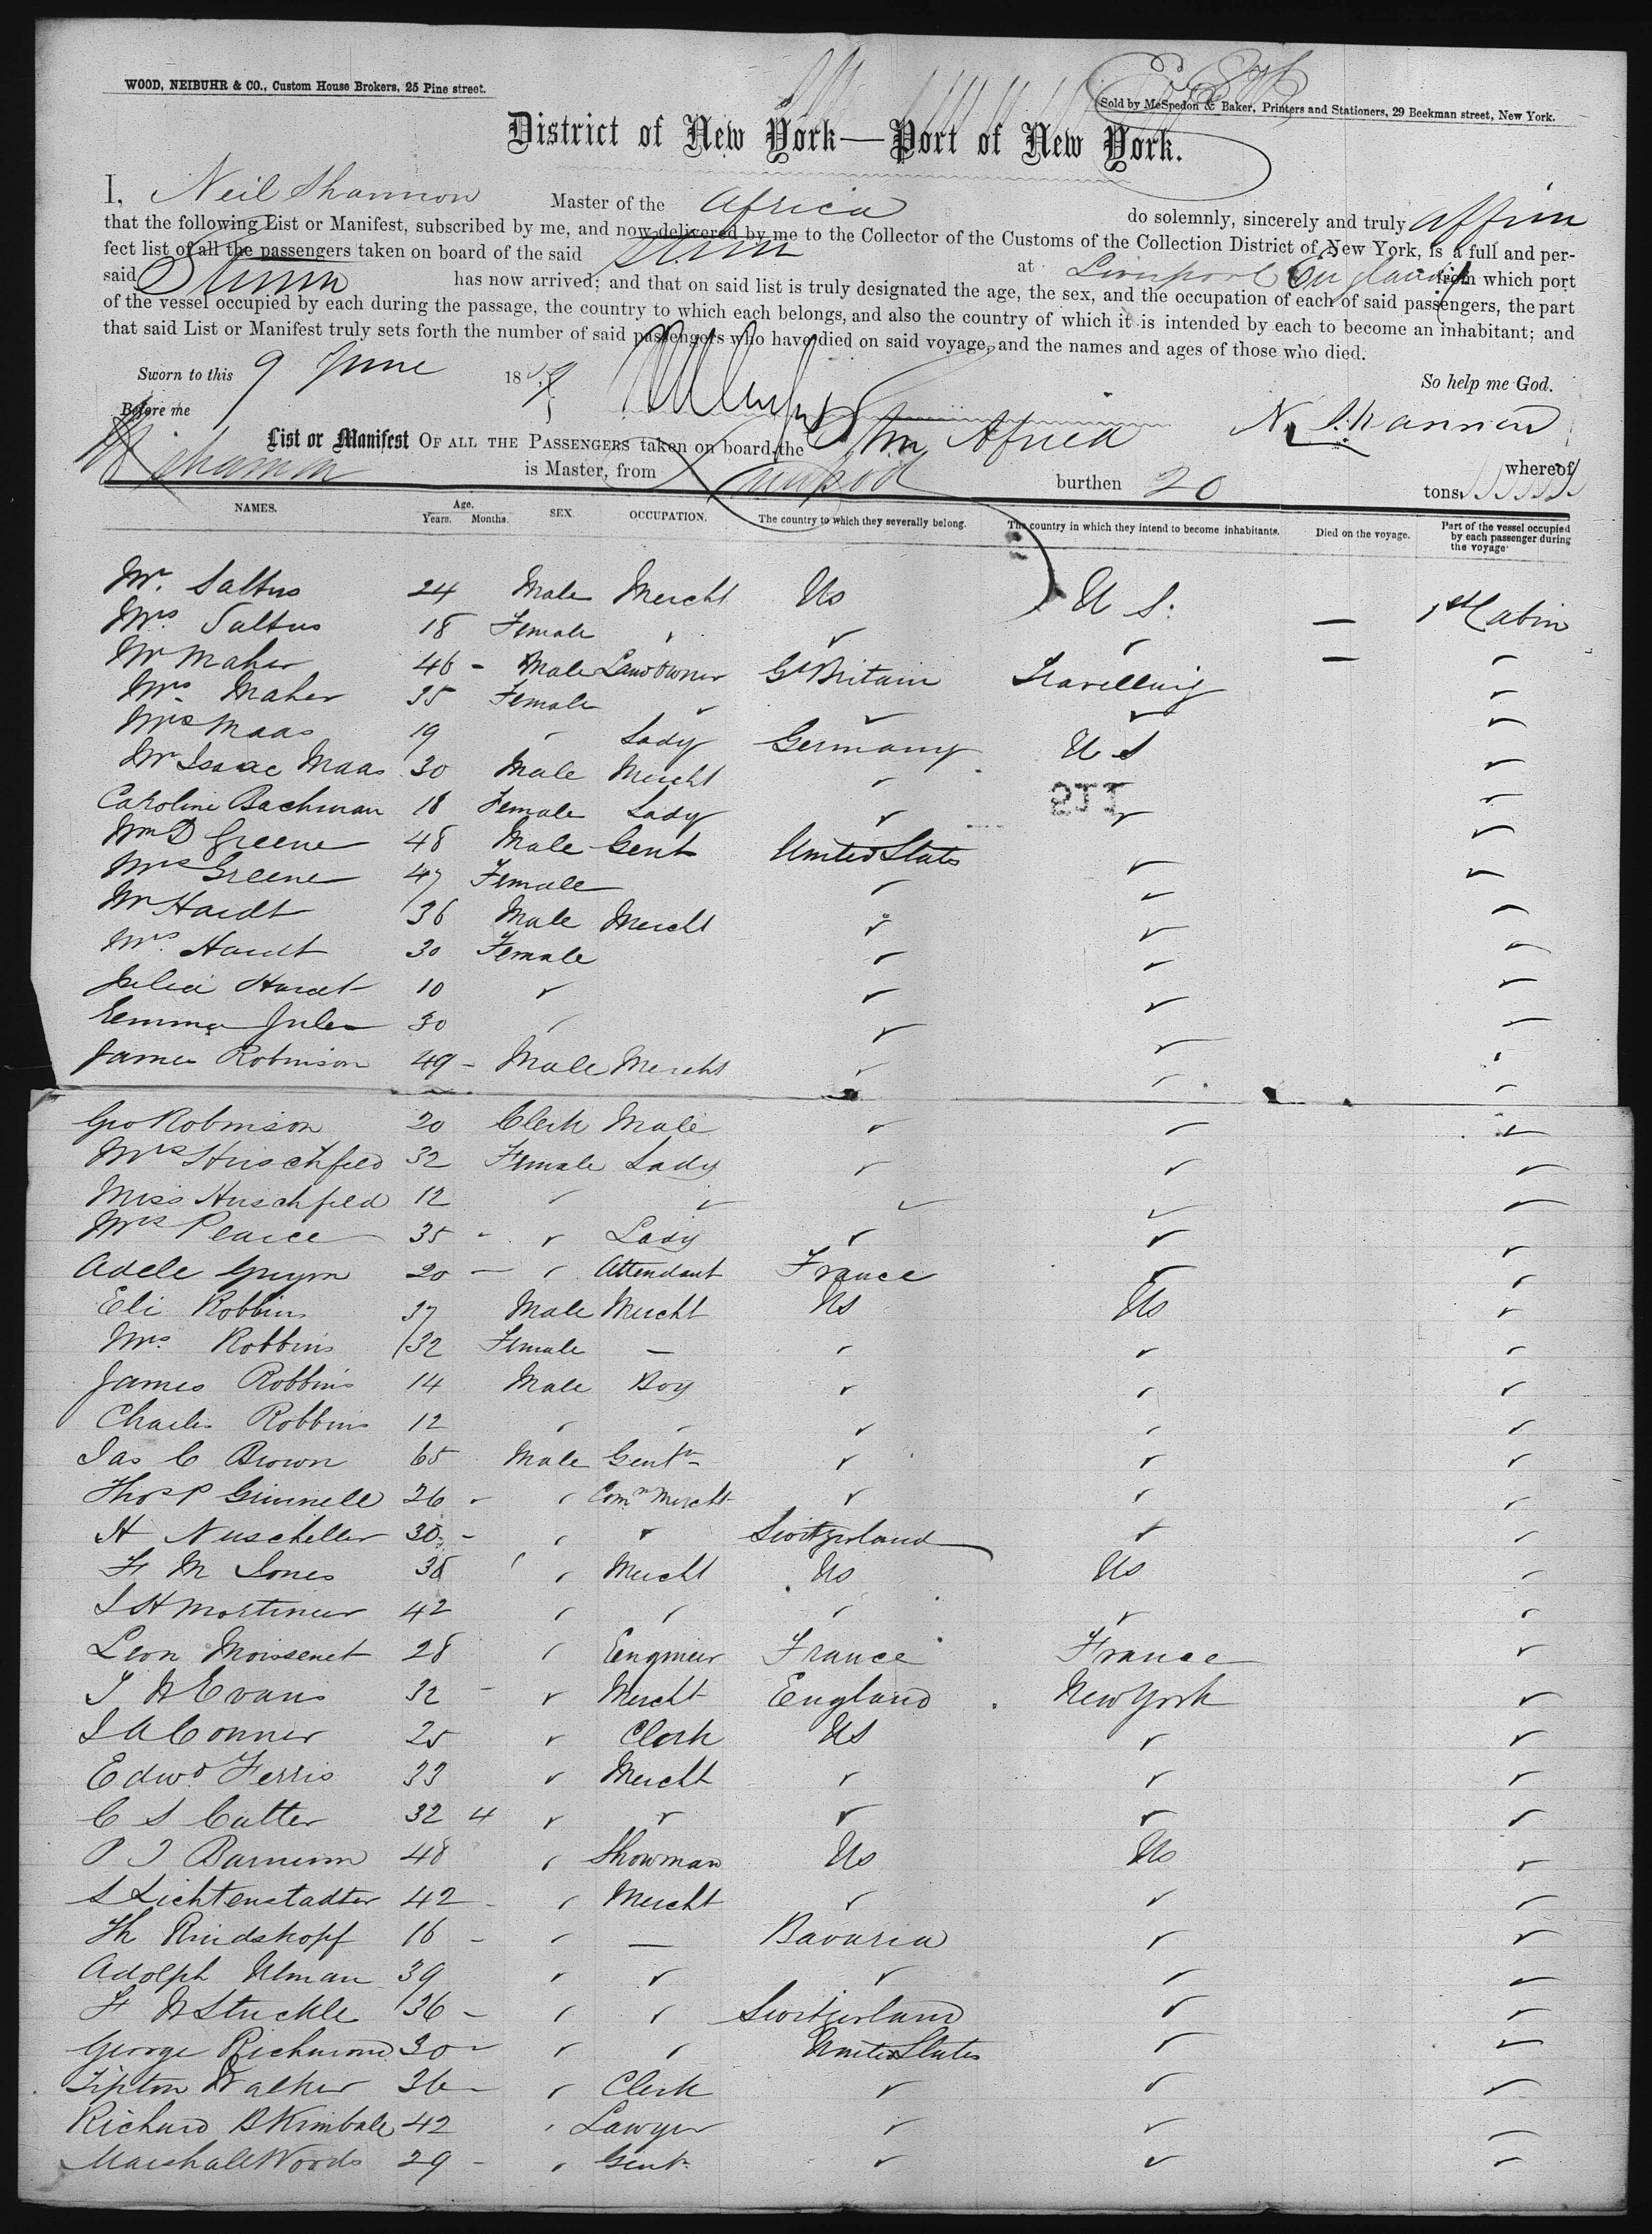 WOOD, NEIBUHR & CO., Custom House Brokers, 25 Pine street.
Sold by McSpedon & Baker, Printers and Stationers, 29 Beekman street, New York.
District of New York—Port of New York.
I, Neil Shannon Master of the Africa do solemnly, sincerely and truly affirm
that the following List or Manifest, subscribed by me, and now delivered by me to the Collector of the Customs of the Collection District of New York, is a full and per-
fect list of all the passengers taken on board of the said Stmr at Liverpool England from which port
said Stmr has now arrived; and that on said list is truly designated the age, the sex, and the occupation of each of said passengers, the part
of the vessel occupied by each during the passage, the country to which each belongs, and also the country of which it is intended by each to become an inhabitant; and
that said List or Manifest truly sets forth the number of said passengers who have died on said voyage, and the names and ages of those who died.
Sworn to this 9 June 18 So help me God.
Before me N. Shannon
List or Manifest OF ALL THE PASSENGERS taken on board the Stmr Africa whereof
N Shannon is Master, from Liverpool burthen 20 tons.
NAMES. Age. Years. Months. SEX. OCCUPATION. The country to which they severally belong. The country in which they intend to become inhabitants. Died on the voyage. Part of the vessel occupied by each passenger during the voyage
Mr. Saltus 24 Male Mercht Us U S. — 1st Cabin
Mrs. Saltus 18 Female — 
Mr Maher 46 - Male Landowner Gt Britain Travelling
Mrs Maher 35 Female
Mrs Maas 19 Lady Germany U S
Mr Isaac Maas 30 Male Mercht
Caroline Bachman 18 Female Lady
Wm D Greene 48 Male Gent United States
Mrs Greene 47 Female
Mr Hardt 36 Male Mercht
Mrs. Hardt 30 Female
Julia Hardt 10
Emma Jules 30
James Robinson 49 - Male Mercht
Geo Robinson 20 Clerk Male
Mrs Hirschfeld 32 Female Lady
Miss Hirschfeld 12
Mrs Pearce 35 - Lady
Adele 20 — Attendant France
Eli Robbins 37 Male Mercht Us Us
Mrs. Robbins 32 Female —
James Robbins 14 Male Boy
Charles Robbins 12
Jas C Brown 65 Male Gentn
Thos P Grinnell 26 - Comn Mercht
H Nuscheller 30 - Switzerland
F M Jones 38 Mercht Us Us
J H Mortimer 42
Leon Moissenet 28 Engineer France France
J W Evans 32 - Mercht England New York
J A Conner 25 Clerk US
Edwd Ferris 33 Mercht
C S Cutter 32 4
P T Barnum 48 Showman Us Us
S Lichtenstadter 42 - Mercht
Th Rindskopf 16 - — Bavaria
Adolph Ulman 39
F W Stuckle 36 - Switzerland
George Richmond 30 - United States
Tipton Walker 36 - Clerk
Richard B Kimball 42 Lawyer
Marshall Woods 29 - Gent